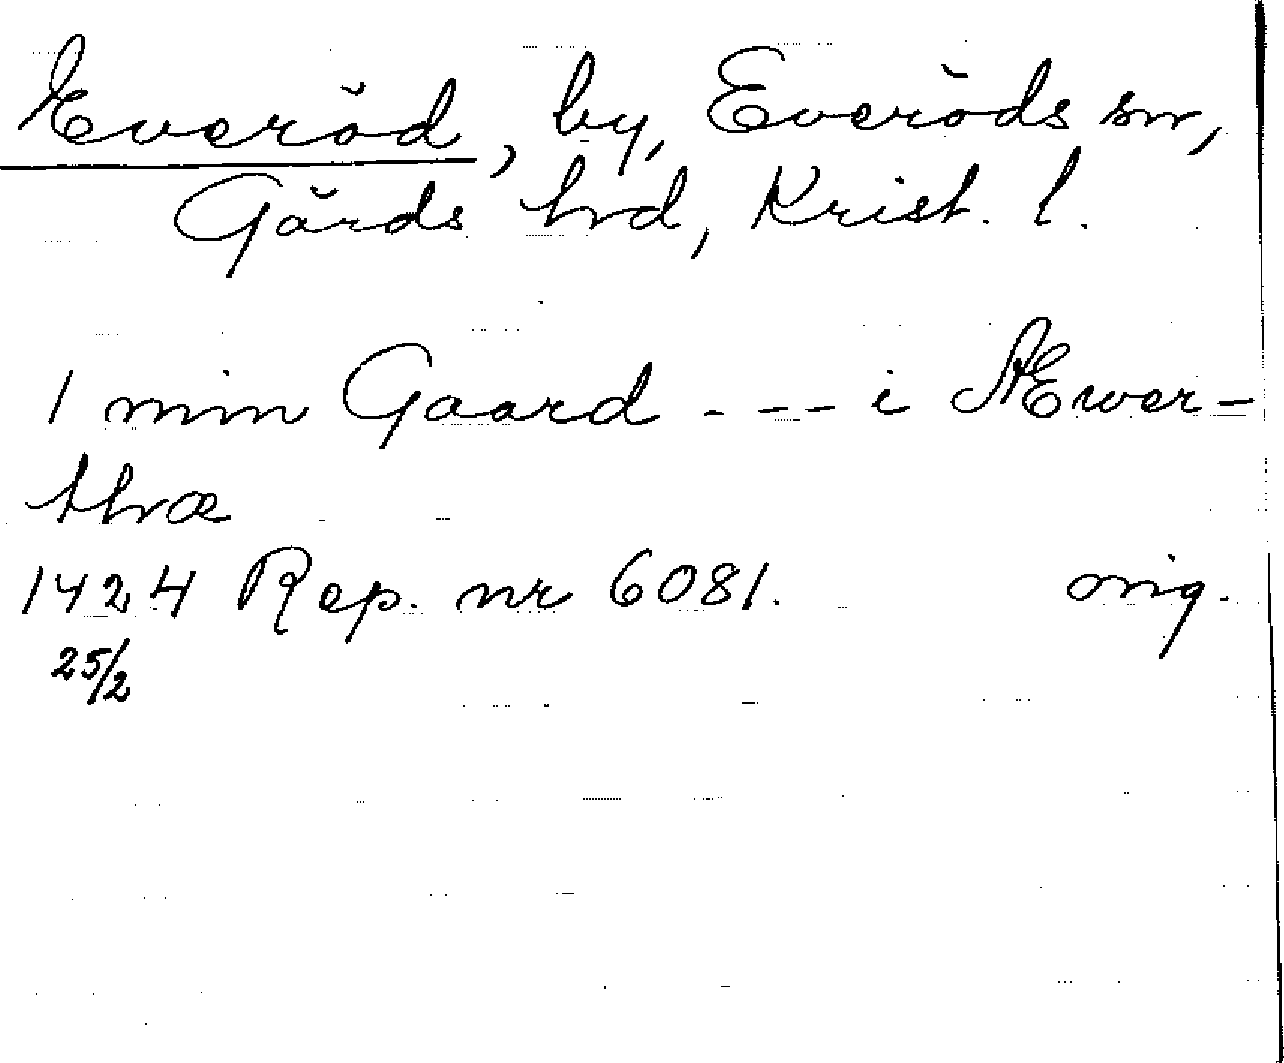 Everöd, by, Everöds sn,
Gärds hrd, Krist. l.
1 min Gaard - - - i Æwer-
thræ
1424 Rep. nr 6081. orig.
25/2